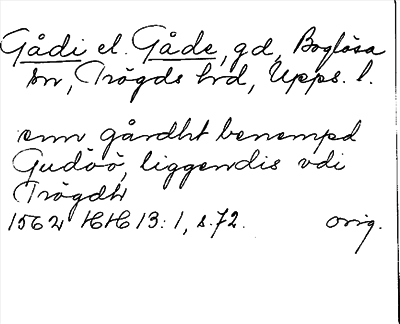 Gådi el. Gåde, gd, Boglösa
sn, Trögds hrd, Upps. l.
enn gårdht benempd
Gudöö, liggendis vdi
Trögdh
1562 HH 13:1, s. 72. orig.